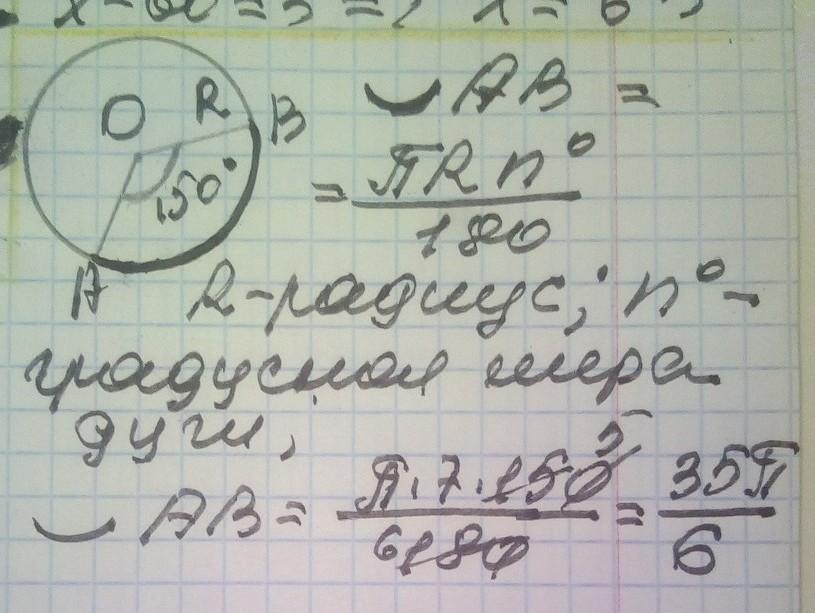 O R B
150°
A
◡ AB =
= πR n° / 180
R - радиус; n° -
градусная мера
дуги,
◡ AB = π · 7 · 150 5 / 6 180 = 35π / 6